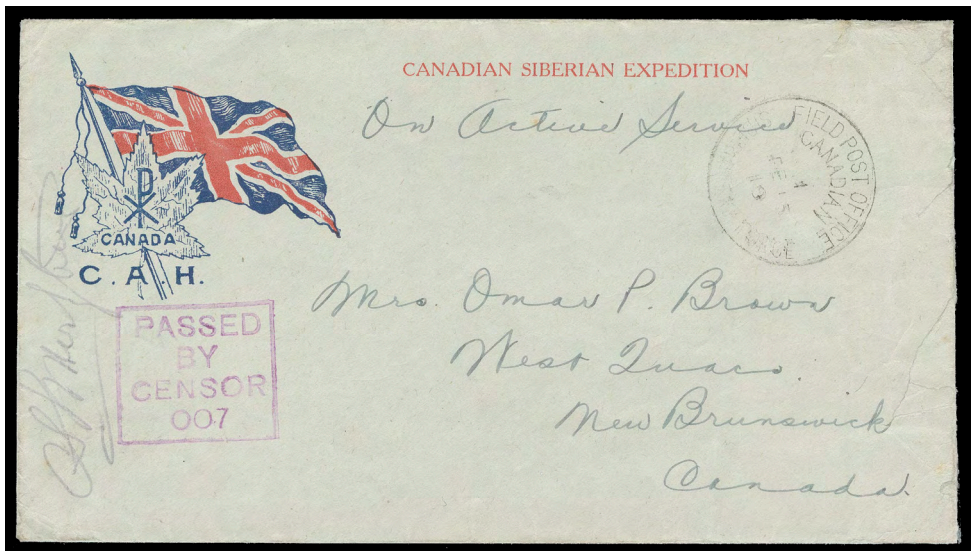 CANADIAN SIBERIAN EXPEDITION
On Active Service
FIELD POST OFFICE
CANADIAN
4
FE
19
FORCE
CANADA
C. A. H.
PASSED
BY
CENSOR
007
Mrs. Omar P. Brown
West Quaco.
New Brunswick
Canada.